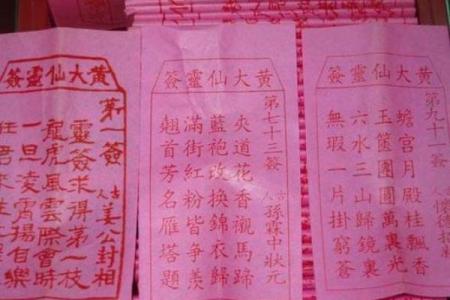 黃大仙靈簽
第一簽
古人姜公封相
靈簽求得第一枝
龍虎風雲際會時
一旦凌霄揚自樂
任君來
黃大仙靈簽
第七十三簽
古人孫霖中狀元
夾道花香襯馬蹄
藍袍改換錦衣歸
滿街紅粉皆爭羨
翹首芳名雁塔題
黃大仙靈簽
第九十一簽
蟾宮月殿桂飄香
玉篋團圓萬裏光
六水三山歸鏡裏
無瑕一片掛窮蒼